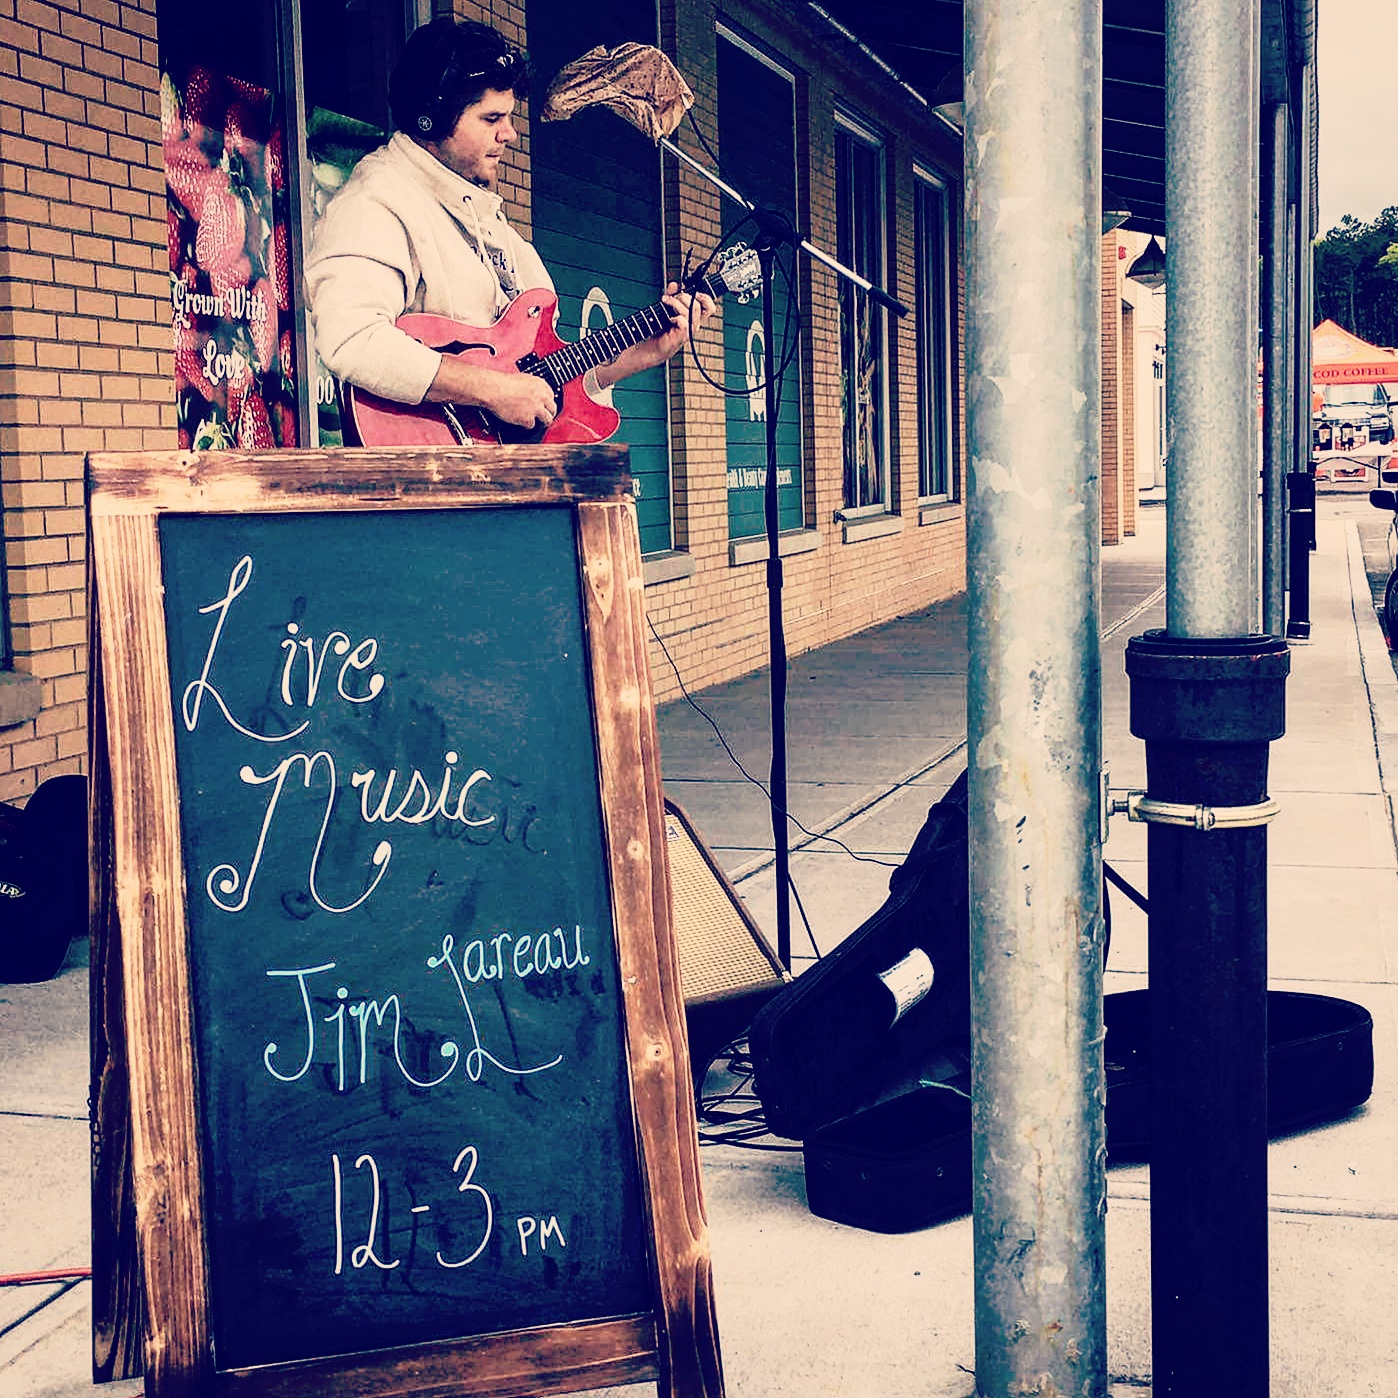 Grown With
Love
COD COFFEE
Live
Music
Jim Lareau
12-3 PM